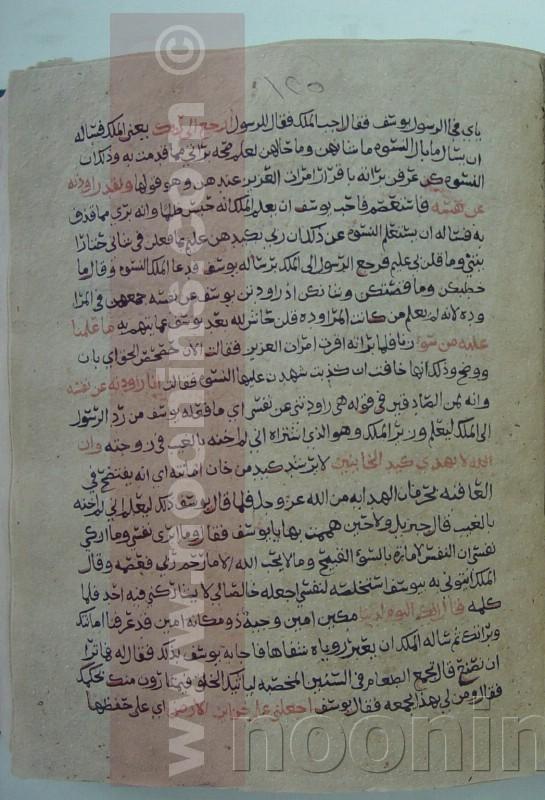 ١٢٥
باي في الرسول يوسف فقال اجب الملك فقال للرسول ارجع الى ربك يعني الملك فسأله
ان يسال ما بال النسوة ما شانهن وما حالهن ليعلم صحة براتي مما قذفت به وذكر ان
النسوة كن عرفن براته باقرار امرات العزيز عندهن وهو قولها ولقد راودته
عن نفسه فاستعصم فاحب يوسف ان يعلم الملك انه حبس ظلما وانه بري مما قذف
به فساله ان يستعلم النسوة عن ذلك ان ربي بكيدهن عليم ما فعلن في شاني
وما قلن لي عليم فرجع الرسول الى الملك برسالة يوسف فدعا الملك النسوة وقال ما
خطبكن وما قصتكن وشانكن اذ راودتن يوسف عن نفسه جمعهن في المرا
ودة لانه لم يعلم من كانت المراودة قلن حاش لله بعد يوسف عما يتهم به ما علمنا
عليه من سوء زنا فلما براته اقرت امرات العزيز فقالت الان حصحص الحق اي بان
ووضح وذلك انها خافت ان كذبت شهدت عليها النسوة فقالت انا راودته عن نفسه
وانه لمن الصادقين في قوله هي راودتني عن نفسي اي ما فعله يوسف من رد الرسول
الى الملك ليعلم وزير الملك وهو الذي اشتراه اني لم اخنه بالغيب في زوجته وان
الله لا يهدي كيد الخاينين لا يرشد كيد من خان امانته اي انه يفتضح في
العاقبة بحرمان الهداية من الله عز وجل فلما قال يوسف ذلك ليعلم اني لم اخنه
بالغيب قال جبريل ولا حين هممت بها يا يوسف فقال وما ابري نفسي وما ازكي
نفسي ان النفس لامارة بالسوء القبيح وما لا يحب الله الا ما رحم ربي فعصمه وقال
الملك ايتوني به بيوسف استخلصه لنفسي اجعله خالصا لي لا يشاركني فيه احد فلما
كلمه قال انك اليوم لدينا مكين امين وجيه ذو مكانة امين قد عرفنا امانتك
وبراتك ثم ساله الملك ان يعبر روياه شفاها فاجابه يوسف بذلك فقال له ما ترا
ان نصنع قال تجمع الطعام في السنين المخصبة لياتيك الخلق فيمتارون منك بحكمك
فقال ومن لي بهذا الجمعه فقال يوسف اجعلني على خزاين الارض اي على حفظها
www.mbanirs.com ©
noonin